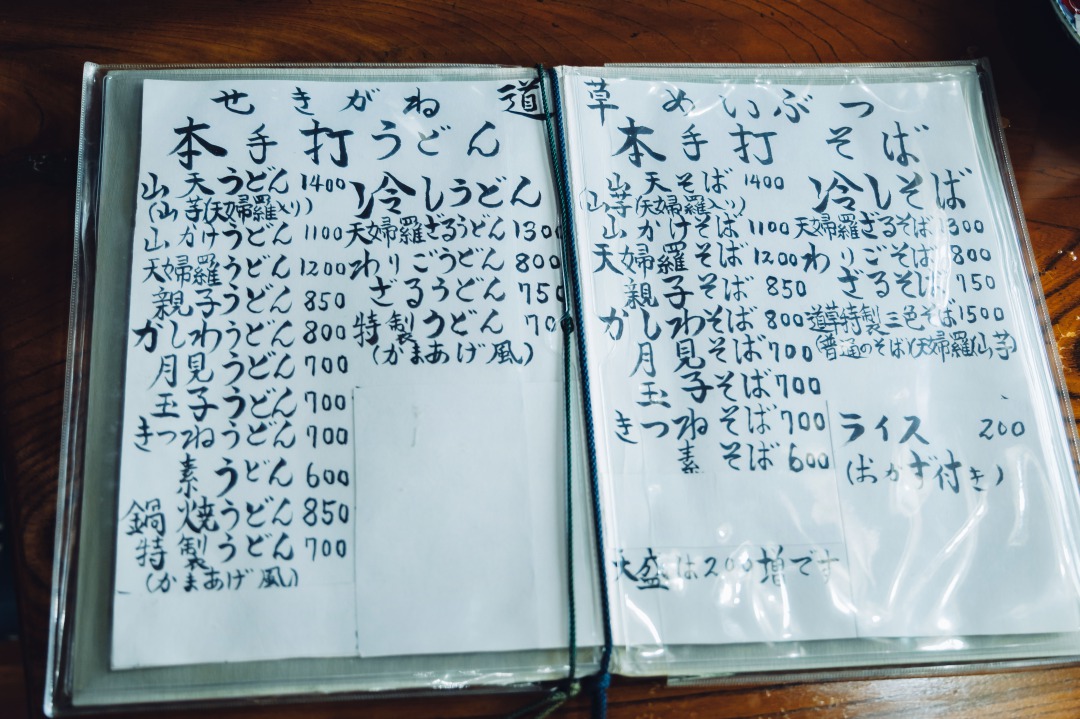 せきがね 道草 めいぶつ
本手打うどん
山天うどん 1400
(山芋(天婦羅入り)
山かけうどん 1100
天婦羅うどん 1200
親子うどん 850
かしわうどん 800
月見うどん 700
玉子うどん 700
きつねうどん 700
素うどん 600
鍋焼うどん 850
特製うどん 700
(かまあげ風)
冷しうどん
天婦羅ざるうどん 1300
わりごうどん 800
ざるうどん 750
特製うどん 70
(かまあげ風)
本手打そば
山天そば 1400
山芋(天婦羅入り)
山かけそば 1100
天婦羅そば 1200
親子そば 850
かしわそば 800
月見そば 700
玉子そば 700
きつねそば 700
素そば 600
大盛は200増です
冷しそば
天婦羅ざるそば 1300
わりごそば 800
ざるそば 750
道草特製三色そば 1500
(普通のそば)(天婦羅)(山芋)
ライス 200
(おかず付き)